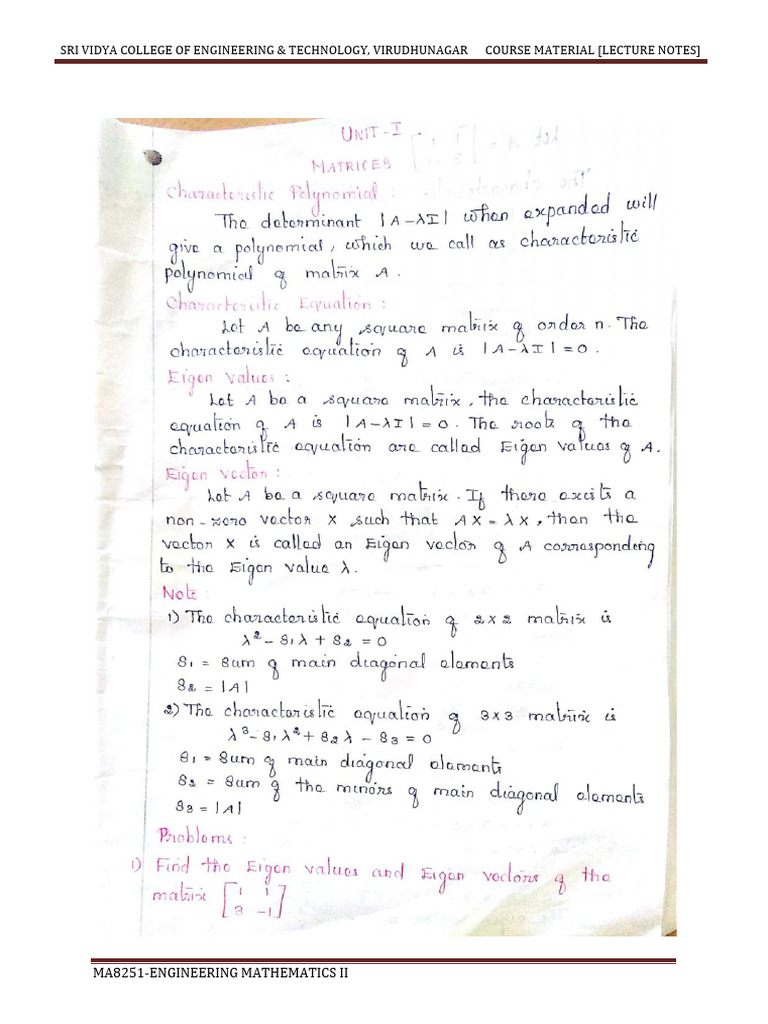 SRI VIDYA COLLEGE OF ENGINEERING & TECHNOLOGY, VIRUDHUNAGAR COURSE MATERIAL [LECTURE NOTES]
UNIT-I
MATRICES
Characteristic Polynomial :
The determinant |A-λI| when expanded will
give a polynomial, which we call as characteristic
polynomial of matrix A.
Characteristic Equation :
Let A be any square matrix of order n. The
characteristic equation of A is |A-λI|=0.
Eigen Values :
Let A be a square matrix, the characteristic
equation of A is |A-λI|=0. The roots of the
characteristic equation are called Eigen values of A.
Eigen vector :
Let A be a square matrix. If there exists a
non-zero vector X such that AX = λX, then the
vector X is called an Eigen vector of A corresponding
to the Eigen value λ.
Note :
1) The characteristic equation of 2x2 matrix is
λ² - S₁λ + S₂ = 0
S₁ = Sum of main diagonal elements
S₂ = |A|
2) The characteristic equation of 3x3 matrix is
λ³ - S₁λ² + S₂λ - S₃ = 0
S₁ = Sum of main diagonal elements
S₂ = Sum of the minors of main diagonal elements
S₃ = |A|
Problems :
1) Find the Eigen values and Eigen vectors of the
matrix [1 1
3 -1]
MA8251-ENGINEERING MATHEMATICS II